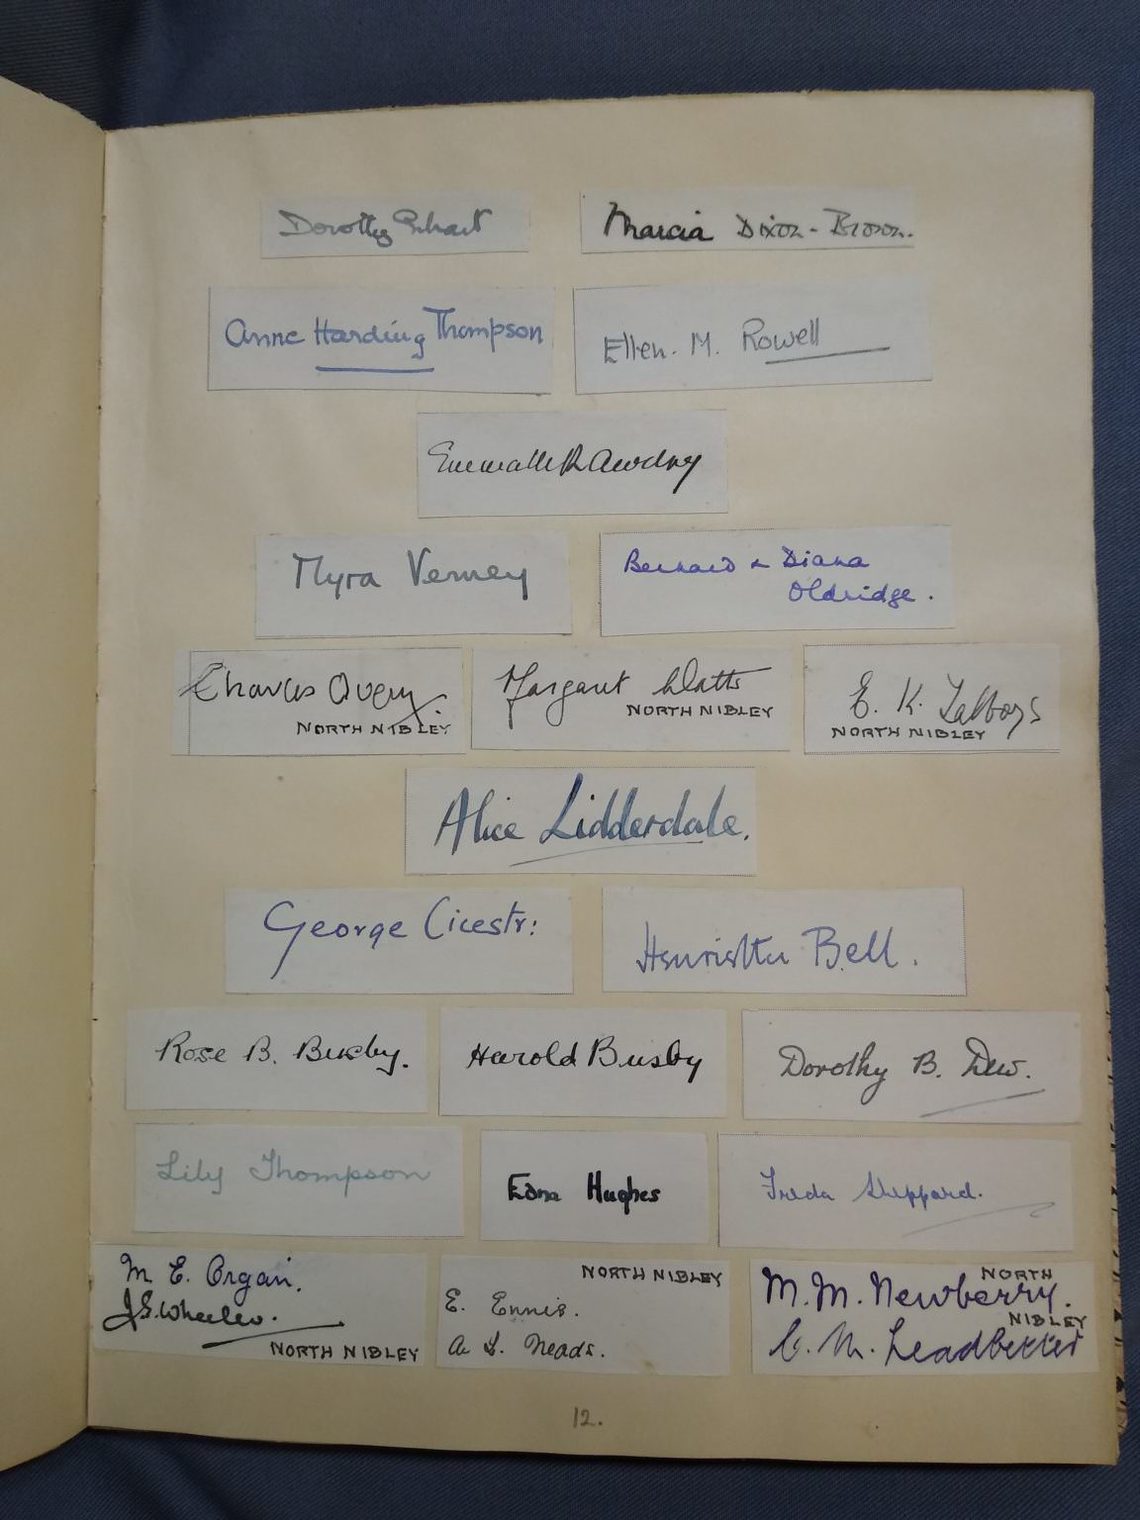 Dorothy
Marcia Dixon-Brown.
Anne Harding Thompson
Ellen. M. Rowell
Awdry
Myra Verney
Bernard & Diana
Oldridge.
Charles Avery
NORTH NIBLEY
Margaret Watts
NORTH NIBLEY
E. K. Talboys
NORTH NIBLEY
Alice Lidderdale.
George Cicestr:
Henrietta Bell.
Rose B. Busby.
Harold Busby
Dorothy B. Dew.
Lily Thompson
Edna Hughes
Freda Sheppard.
M. E. Organ.
J.S. Wheeler.
NORTH NIBLEY
NORTH NIBLEY
E. Ennis.
A. L. Neads.
NORTH
M. M. Newberry.
NIBLEY
C. M. Leadbetter
12.